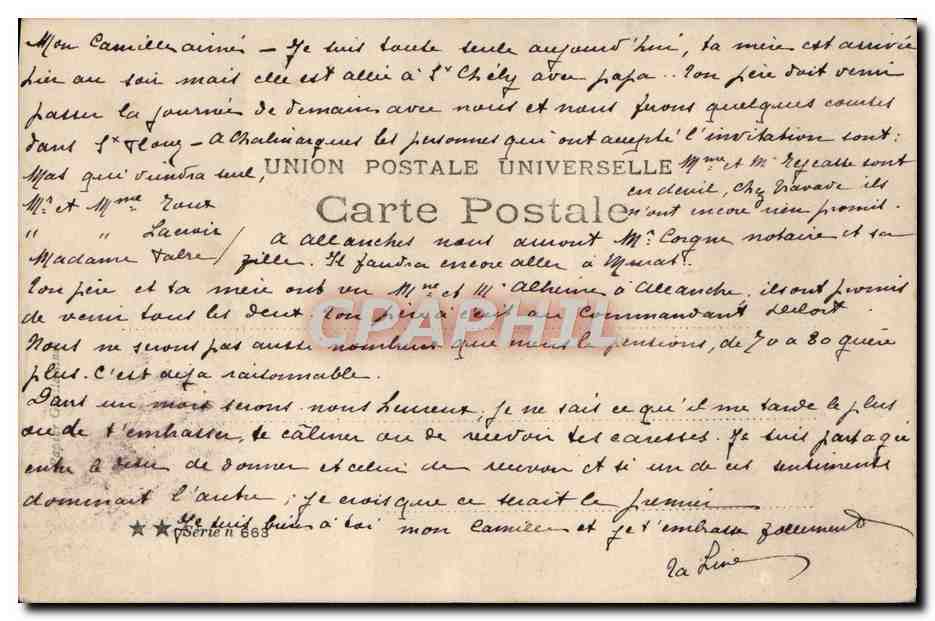 Mon Camille aimé – Je suis toute seule aujourd'hui, ta mère est arrivée
hier au soir mais elle est allée à St Chély avec papa.. Ton père doit venir
passer la journée de demain avec nous et nous ferons quelques courses
dans St Flour – A Chalinargues les personnes qui ont accepté l'invitation sont:
Mas qui viendra seul,
UNION POSTALE UNIVERSELLE
Mme et Mr sont
en deuil, chez ils
n'ont encore rien promis.
Mr et Mme Roux
Carte Postale
" " Lacroix
Madame Fabre
à Allanches nous aurons Mr Corgne notaire et sa
fille. Il faudra encore aller à Murat.
Ton père et ta mère ont vu Mme et Mr à Allanche, ils ont promis
de venir tous les deux. Ton père a écrit au Commandant
CPAPHIL
Nous ne serons pas aussi nombreux que nous le pensions, de 70 à 80 guère
plus. C'est déjà raisonnable.
Dans un mois serons nous heureux, je ne sais ce qu'il me tarde le plus
ou de t'embrasser, te câliner ou de recevoir tes caresses. Je suis partagée
entre le désir de donner et celui de recevoir et si un de ces sentiments
dominait l'autre; je crois que ce serait le premier
Je suis bien à toi mon Camille et je t'embrasse follement
★★ Série n 663
Ta Line